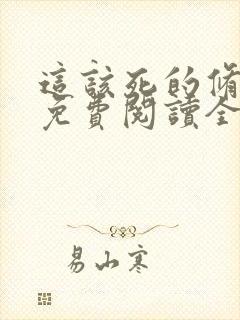 這該死的脩
免費閱讀全
易山寒